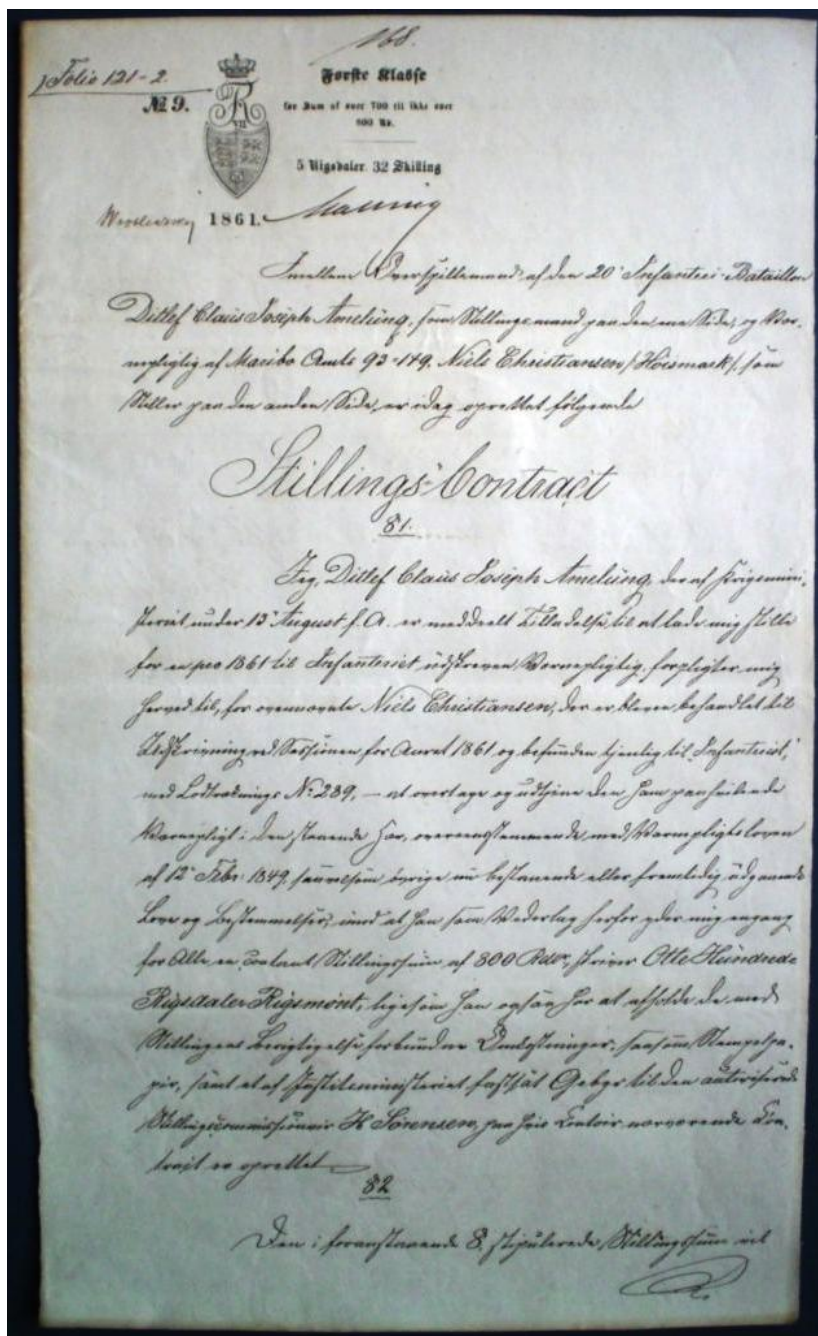 168.
Folio 121-2.
Første Klasse
№ 9.
for Sum af over 700 til ikke over
800 Rd.
5 Rigsdaler 32 Skilling
1861.
Imellem Overspillemand af den 20' Infanteri-Bataillon
Ditlef Claus Joseph Amelung, som Stillingsmand paa den ene Side, og Vær-
nepligtig af Maribo Amts 93-149, Niels Christiansen /Høismark/, som
Stiller paa den anden Side, er idag oprettet følgende
Stillings-Contract
§1.
Jeg, Ditlef Claus Joseph Amelung, der af Krigsmini-
steriet under 13' August f. A. er meddeelt Tilladelse til at lade mig stille
for en pro 1861 til Infanteriet udskreven Værnepligtig, forpligter mig
herved til, for ovennævnte Niels Christiansen, der er bleven behandlet til
Udskrivning ved Sessionen for Aaret 1861 og befunden tjenlig til "Infanteriet,"
med Lodtræknings No 289, - at overtage og udtjene den ham paahvilende
Værnepligt i den staaende Hær, overeensstemmende med Værnepligtsloven
af 12' Febr. 1849, saavelsom øvrige nu bestaaende eller fremtidig udgaaende
Love og Bestemmelser, imod at han som Vederlag herfor yder mig engang
for Alle en contant Stillingssum af 800 Rdlr, skriver Otte Hundrede
Rigsdaler Rigsmønt, ligesom han ogsaa har at afholde de med
Stillingens Berigtigelse forbundne Omkostninger, saasom Stempelpa-
pir, samt et af Justitsministeriet fastsat Gebyr til den autoriserede
Stillingscommissionair H Sørensen, paa hvis Contoir nærværende Con-
tract er oprettet
§2
Den i foranstaaende §. stipulerede Stillingssum vil